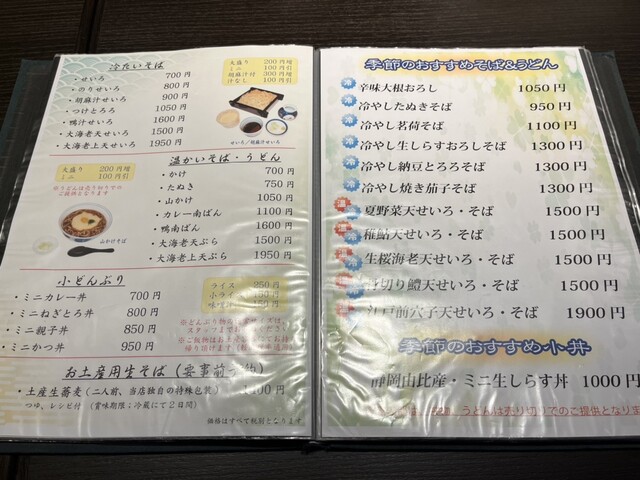 冷たいそば
・せいろ 700円
・のりせいろ 800円
・胡麻汁せいろ 900円
・つけとろろ 1050円
・鴨汁せいろ 1600円
・大海老天せいろ 1500円
・大海老上天せいろ 1950円
大盛り 200円増
ミニ 100円引
胡麻汁付 300円増
汁なし 100円引
せいろ/胡麻汁せいろ
温かいそば・うどん
大盛り 200円増
ミニ 100円引
※うどんは売り切りでの
ご提供となります
山かけそば
・かけ 700円
・たぬき 750円
・山かけ 1050円
・カレー南ばん 1100円
・鴨南ばん 1600円
・大海老天ぷら 1500円
・大海老上天ぷら 1950円
小どんぶり
・ミニカレー丼 700円
・ミニねぎとろ丼 800円
・ミニ親子丼 850円
・ミニかつ丼 950円
ライス 250円
小ライス 150円
味噌汁 150円
お土産用生そば(要事前予約)
・土産生蕎麦(二人前、当店独自の特殊包装) 1,100円
つゆ、レシピ付(賞味期限;冷蔵にて2日間)
価格はすべて税別となります
季節のおすすめそば&うどん
冷 辛味大根おろし 1050円
冷 冷やしたぬきそば 950円
冷 冷やし茗荷そば 1100円
冷 冷やし生しらすおろしそば 1300円
冷 冷やし納豆とろろそば 1300円
冷 冷やし焼き茄子そば 1300円
夏野菜天せいろ・そば 1500円
稚鮎天せいろ・そば 1500円
生桜海老天せいろ・そば 1500円
骨切り鱧天せいろ・そば 1500円
江戸前穴子天せいろ・そば 1900円
季節のおすすめ小丼
静岡由比産・ミニ生しらす丼 1000円
うどんは売り切りでのご提供となりま